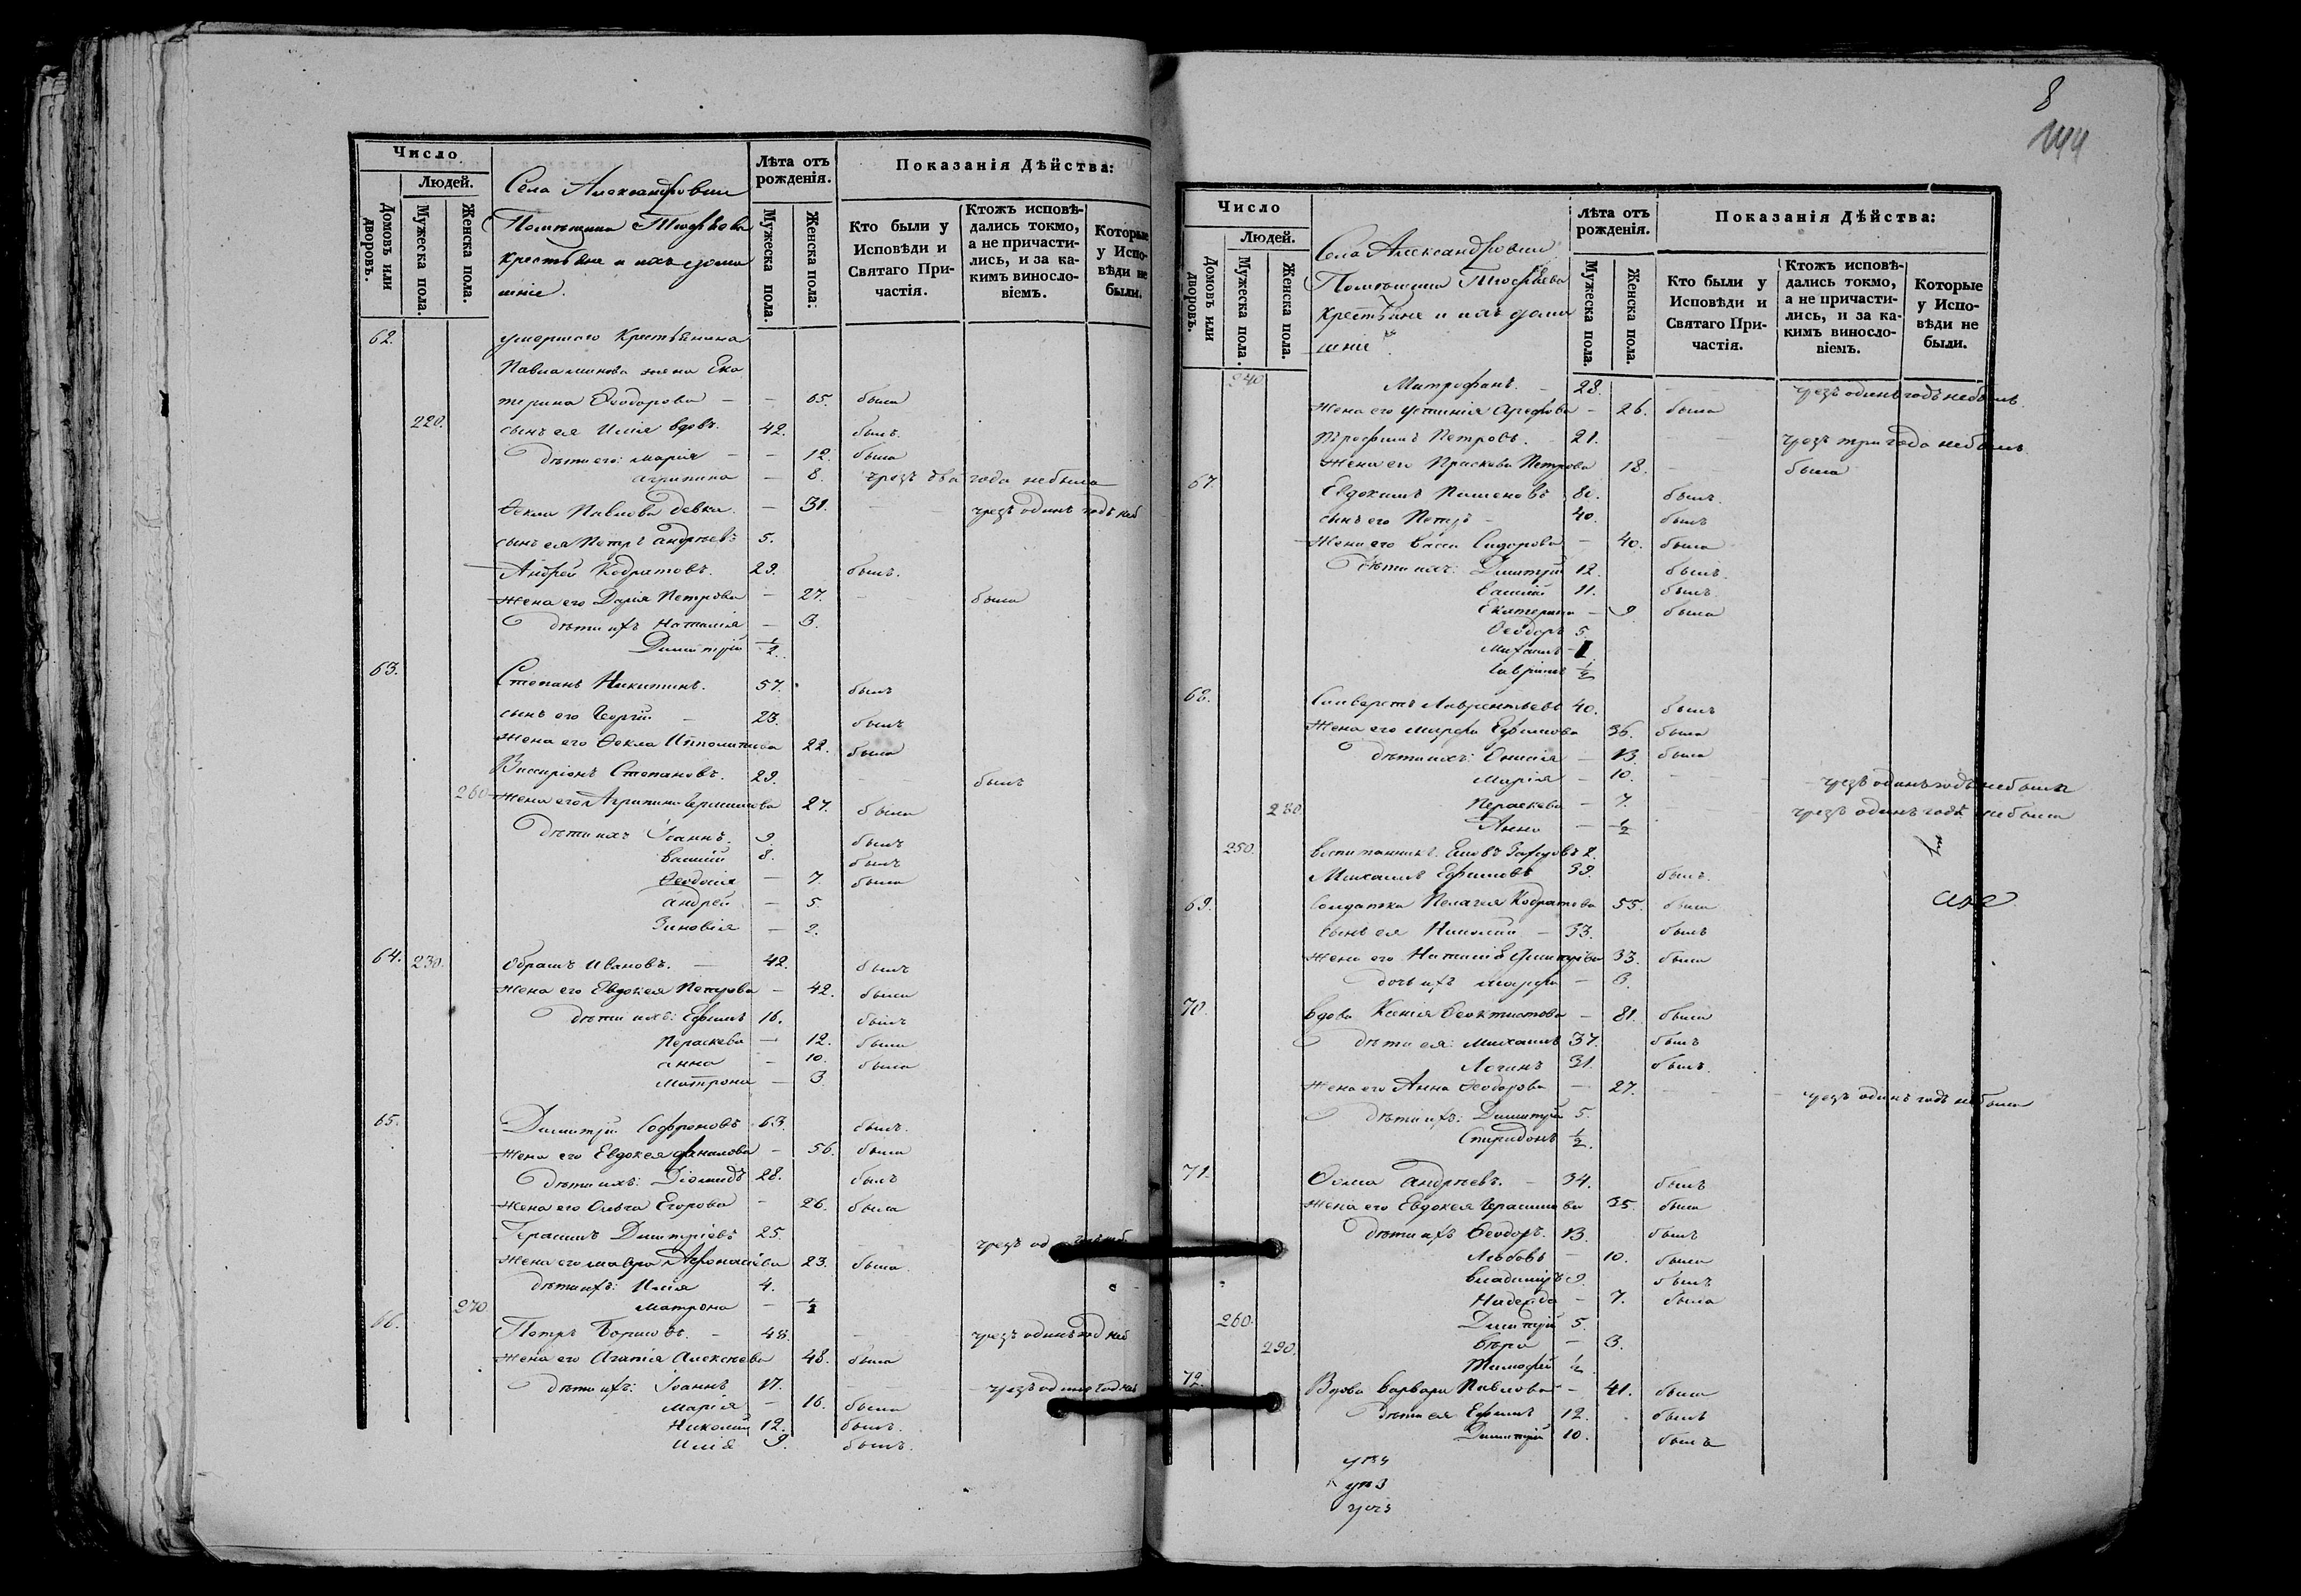 Число
Людей.
Домовъ или дворовъ.
Мужеска пола.
Женска пола.
Села Александровки
Помѣщика
крестьяне и ихъ дома
шніе.
Лѣта отъ рожденія.
Мужеска пола.
Женска пола:
Показанія Дѣйства:
Кто были у Исповѣди и Святаго Причастія.
Ктожъ исповѣдались токмо, а не причастились, и за какимъ винословіемъ.
Которые у Исповѣди не были.
62. умершаго Крестьянина
Павла жена Ека
терина Ѳеодорова — — 65. была
220. сынъ ея Илія вдовъ. 42. былъ.
дѣти его: Марія — — 12. была
Агрипина — 8. чрезъ два года небыла
Ѳекла Павлова девка. — 31. — — чрезъ одинъ годъ неб
сынъ ея Петръ Андреевъ 5.
Андрей Кодратовъ. 29. былъ.
Жена его Дарія Петрова — 27. — — была
дѣти ихъ Наталія — 3.
Димитрій ½.
63. Степанъ Никитинъ. 57. былъ
сынъ его Георгій — 23. былъ
Жена его Ѳекла Ипполитова 22. была
Виссаріонъ Степановъ. 29. — — былъ
260 Жена его Агрипина 27. была
дѣти ихъ Іоаннъ. 9. былъ
Василій 8. былъ
Ѳеодосія — 7. была
Андрей — 5.
Зиновія — 2.
64. 230. Абрамъ Ивановъ. — 42. былъ
Жена его Евдокея Петрова — 42. была
дѣти ихъ: Ефимъ 16. былъ
Пераскева — 12. была
Анна — 10. была
Матрона — 3
65. Димитрій Софроновъ 63. былъ.
Жена его Евдокея — 56. была
дѣти ихъ: Діомидъ 28. былъ
Жена его Ольга Егорова — 26. была
Герасимъ Димитріевъ 25. чрезъ од
Жена его Мавра Афонасіева 23. была.
дѣти ихъ: Илія 4.
270. Матрона — ½
66. Петръ Борисовъ. — 48. — — чрезъ одинъ год неб
Жена его Агапія Алексѣева 48. была
дѣти ихъ: Іоаннъ 17. — — чрезъ один год неб
Марія — 16. была
Николай 12. былъ.
Илія 9. былъ.
8
144
Число
Людей.
Домовъ или дворовъ.
Мужеска пола.
Женска пола.
Села Александровки
Помѣщика
крестьяне и ихъ дома
шніе.
Лѣта отъ рожденія.
Мужеска пола.
Женска пола.
Показанія Дѣйства:
Кто были у Исповѣди и Святаго Причастія.
Ктожъ исповѣдались токмо, а не причастились, и за какимъ винословіемъ.
Которые у Исповѣди не были.
240 Митрофанъ. — 28. — — чрезъ одинъ годъ небылъ.
Жена его Устинія Арефова — 26. была
Трофимъ Петровъ. — 21. — — чрезъ три года небылъ.
Жена его Праскева Петрова 18. — — была
67. Евдокимъ 80. былъ.
сынъ его Петръ — 40. былъ
Жена его Васса Сидорова — 40. была
дѣти ихъ: Димитрій 12. былъ.
Василій 11. былъ.
Екатерина — 9. была
Ѳеодоръ 5.
Михаилъ 1
Гавріилъ ½
68. Силиверстъ Лаврентьевъ 40. былъ
Жена его Марфа Ефимова 36. была
дѣти ихъ: Онисія — 13. была
Марія — 10. — — чрезъ одинъ годъ небыла
280. Пераскева — 7. — — чрезъ одинъ годъ небыла
Анна — ½
250. Воспитанникъ 2.
Михаилъ Ефимовъ 39. былъ.
69. Солдатка Пелагея Кодратова 55. была
Сынъ ея Николай — 33. былъ
Жена его Наталія Димитріева 33. была
дочь ихъ Марфа — 3.
70. Вдова Ксенія Ѳеоктистова — 81. была
дѣти ея: Михаилъ 37. былъ
Логинъ 31. былъ.
Жена его Анна Ѳеодорова — 27. — — чрезъ одинъ годъ небыла
дѣти ихъ: Димитрій 5.
Спиридонъ ½.
71. Ѳома Андреевъ. — 34. былъ
Жена его Евдокея Герасимова 35. была
дѣти ихъ Ѳеодоръ. 13. былъ
Любовь — 10. была
Владиміръ 9. былъ
Надежда — 7. была
260. Димитрій 5.
290. Вѣра — 3.
Тимофей ½
72. Вдова Варвара Павлова — 41. была
дѣти ея Ефимъ 12. былъ
Димитрій 10. былъ